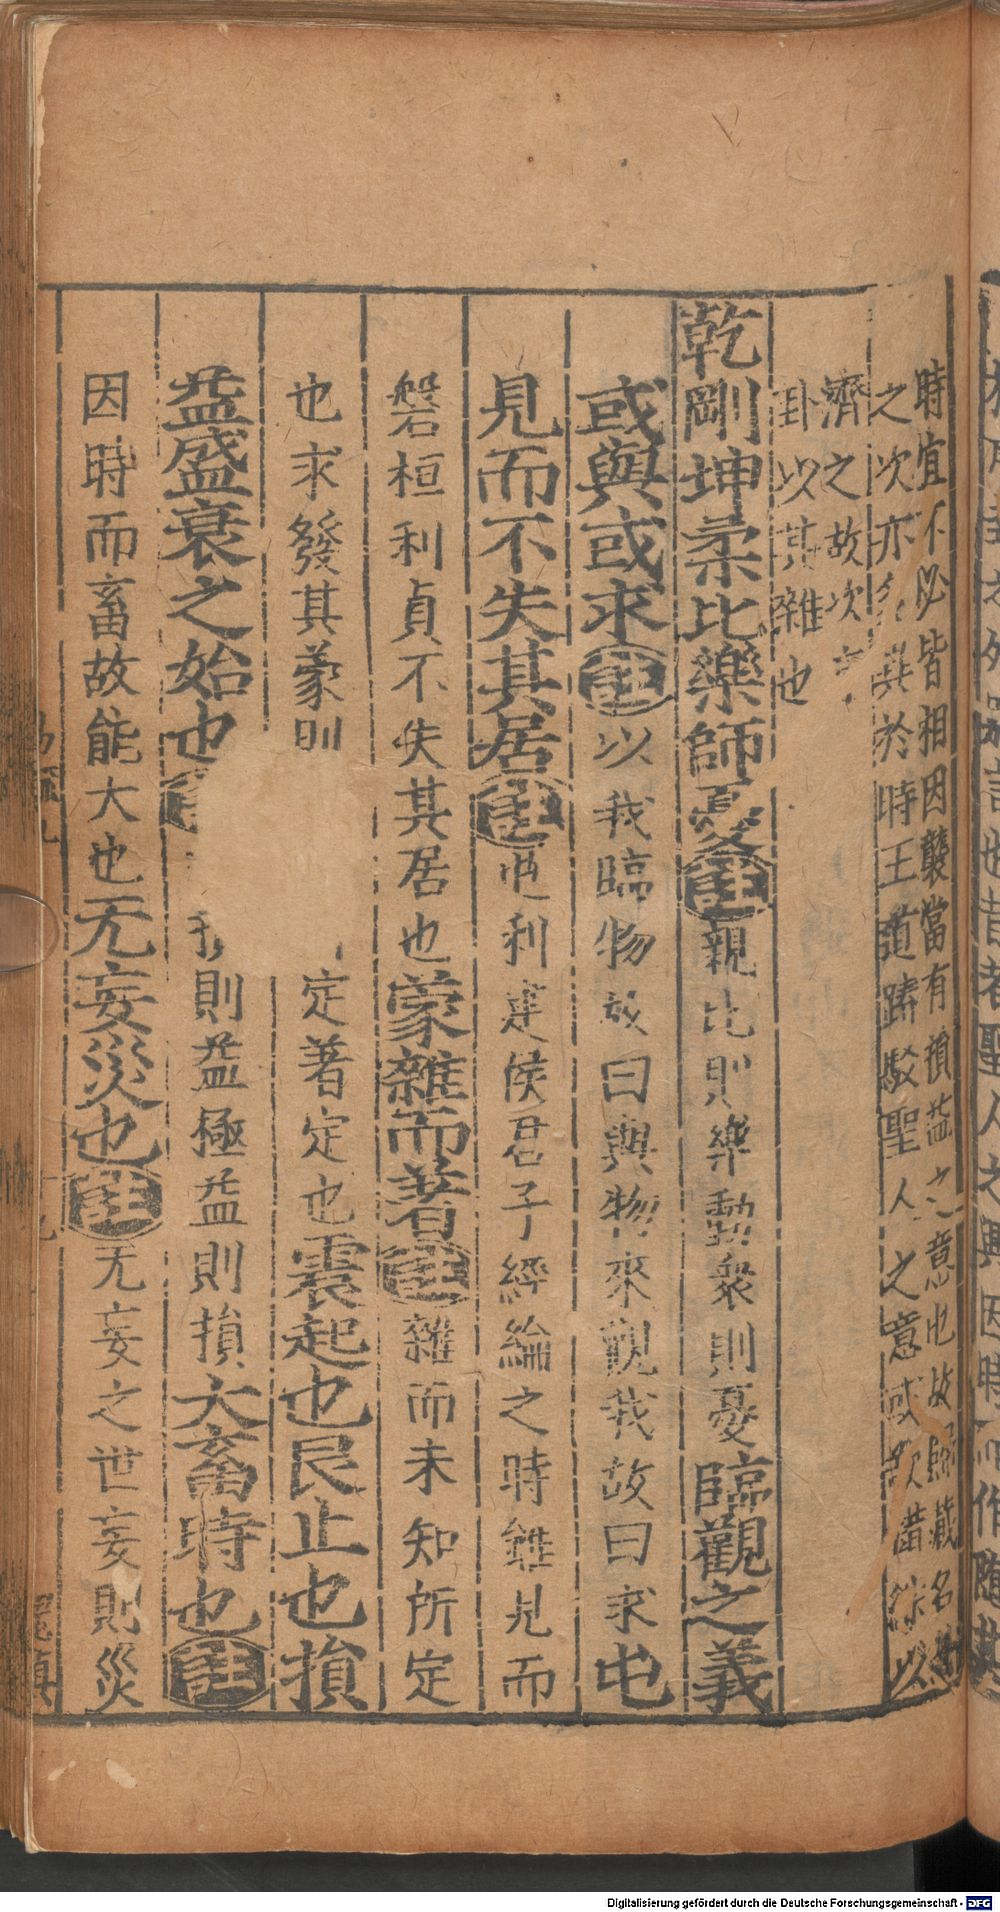 時宜不必皆相因襲當有損益之意也故歸藏名卦
之次亦多異於時王道踳駁聖人之意或欲錯綜以
濟之故次
卦以其雜也
乾剛坤柔比樂師憂註親比則樂動衆則憂臨觀之義
或與或求註以我臨物故曰與物來觀我故曰求屯
見而不失其居註屯利建侯君子經綸之時雖見而
磐桓利貞不失其居也蒙雜而著註雜而未知所定
也求發其蒙則 定著定也震起也艮止也損
益盛衰之始也 損則益極益則損大畜時也註
因時而畜故能大也无妄災也註无妄之世妄則災
Digitalisierung gefördert durch die Deutsche Forschungsgemeinschaft - DFG